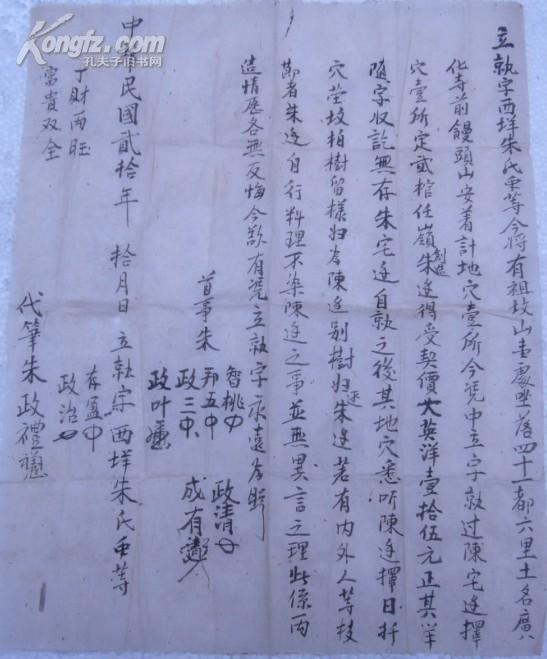 立執字西垟朱氏衆等今將有祖坟山壹處坐落四十一都六里土名廣八
化寺前饅頭山安着計地穴壹所今凭中立字執过陳宅邊擇
穴壹所定貳棺任嶺朱邊得受契價大英洋壹拾伍元正其洋
隨字收訖無存朱宅邊自執之後其地穴悉听陳邊擇日扦
穴茔坟柏樹留樣归与陳邊别樹归还朱邊若有内外人等枝
節者朱邊自行料理不染陳邊之事並無異言之理此係两
造情愿各無反悔今欲有凭立執字永遠存照
首事朱
智桃
邦五中
政三中
政叶
政清
成有
中華民國貳拾年 拾月日 立執字西垟朱氏衆等
存孟中
政治
丁財両旺
富貴双全
代筆朱政禮
Kongfz.com
孔夫子旧书网